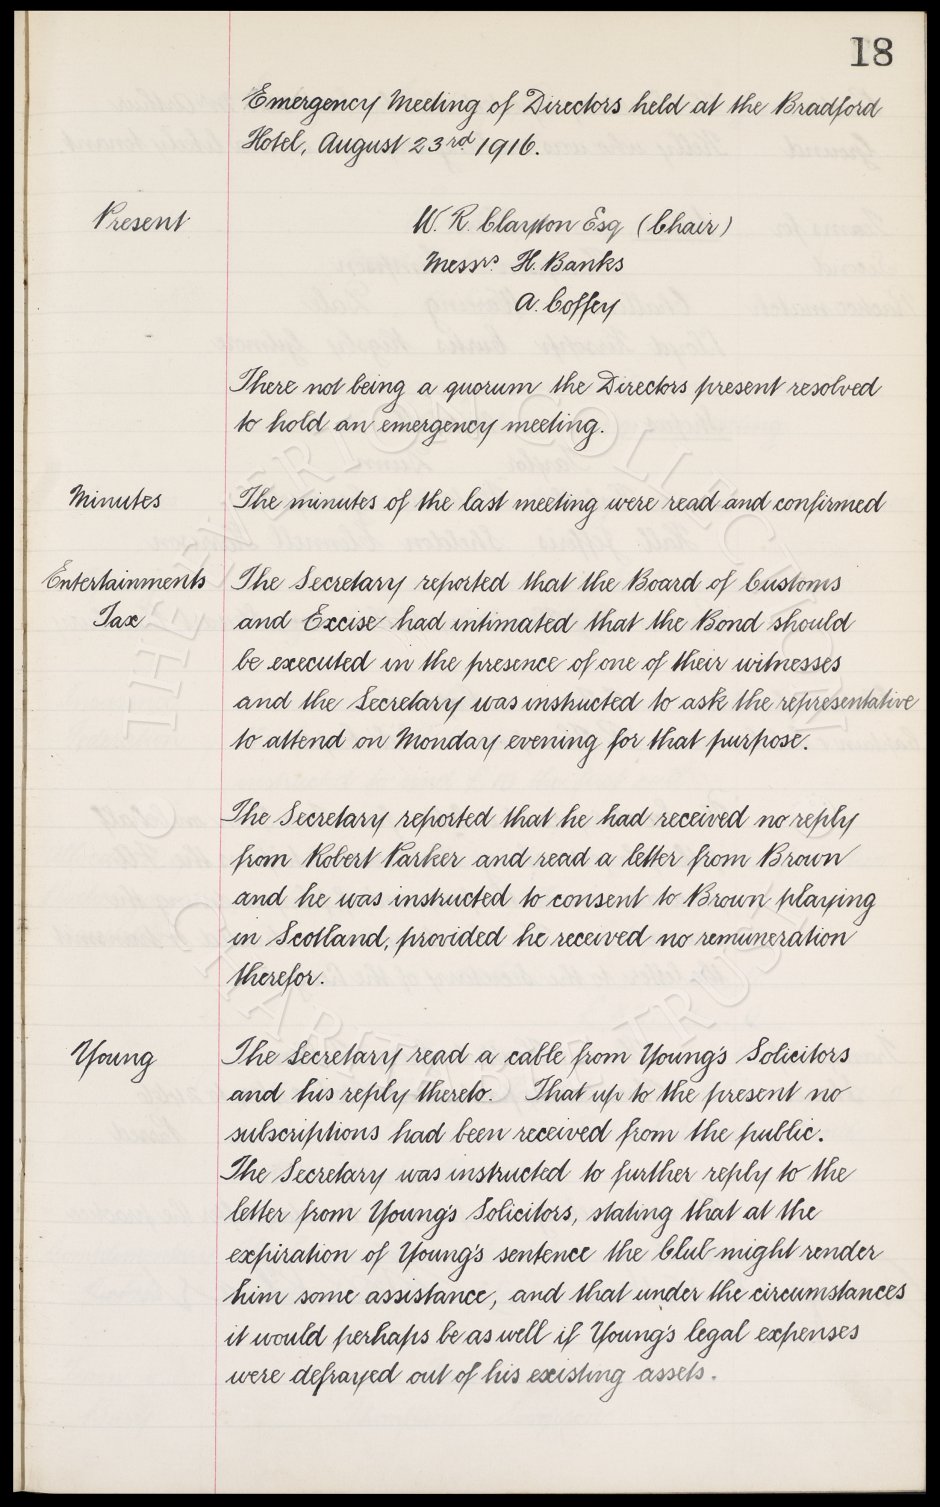 18
Emergency Meeting of Directors held at the Bradford
Hotel, August 23rd 1916.
Present
W. R. Clayton Esq (Chair)
Messrs. H. Banks
A. Coffey
There not being a quorum the Directors present resolved
to hold an emergency meeting.
Minutes
The minutes of the last meeting were read and confirmed
Entertainments
Tax
The Secretary reported that the Board of Customs
and Excise had intimated that the Bond should
be executed in the presence of one of their witnesses
and the Secretary was instructed to ask the representative
to attend on Monday evening for that purpose.
The Secretary reported that he had received no reply
from Robert Parker and read a letter from Brown
and he was instructed to consent to Brown playing
in Scotland, provided he received no remuneration
therefor.
Young
The Secretary read a cable from Young's Solicitors
and his reply thereto. That up to the present no
subscriptions had been received from the public.
The Secretary was instructed to further reply to the
letter from Young's Solicitors, stating that at the
expiration of Young's sentence the Club might render
him some assistance, and that under the circumstances
it would perhaps be as well if Young's legal expenses
were defrayed out of his existing assets.
THE EVERTON COLLECTION
CHARITABLE TRUST